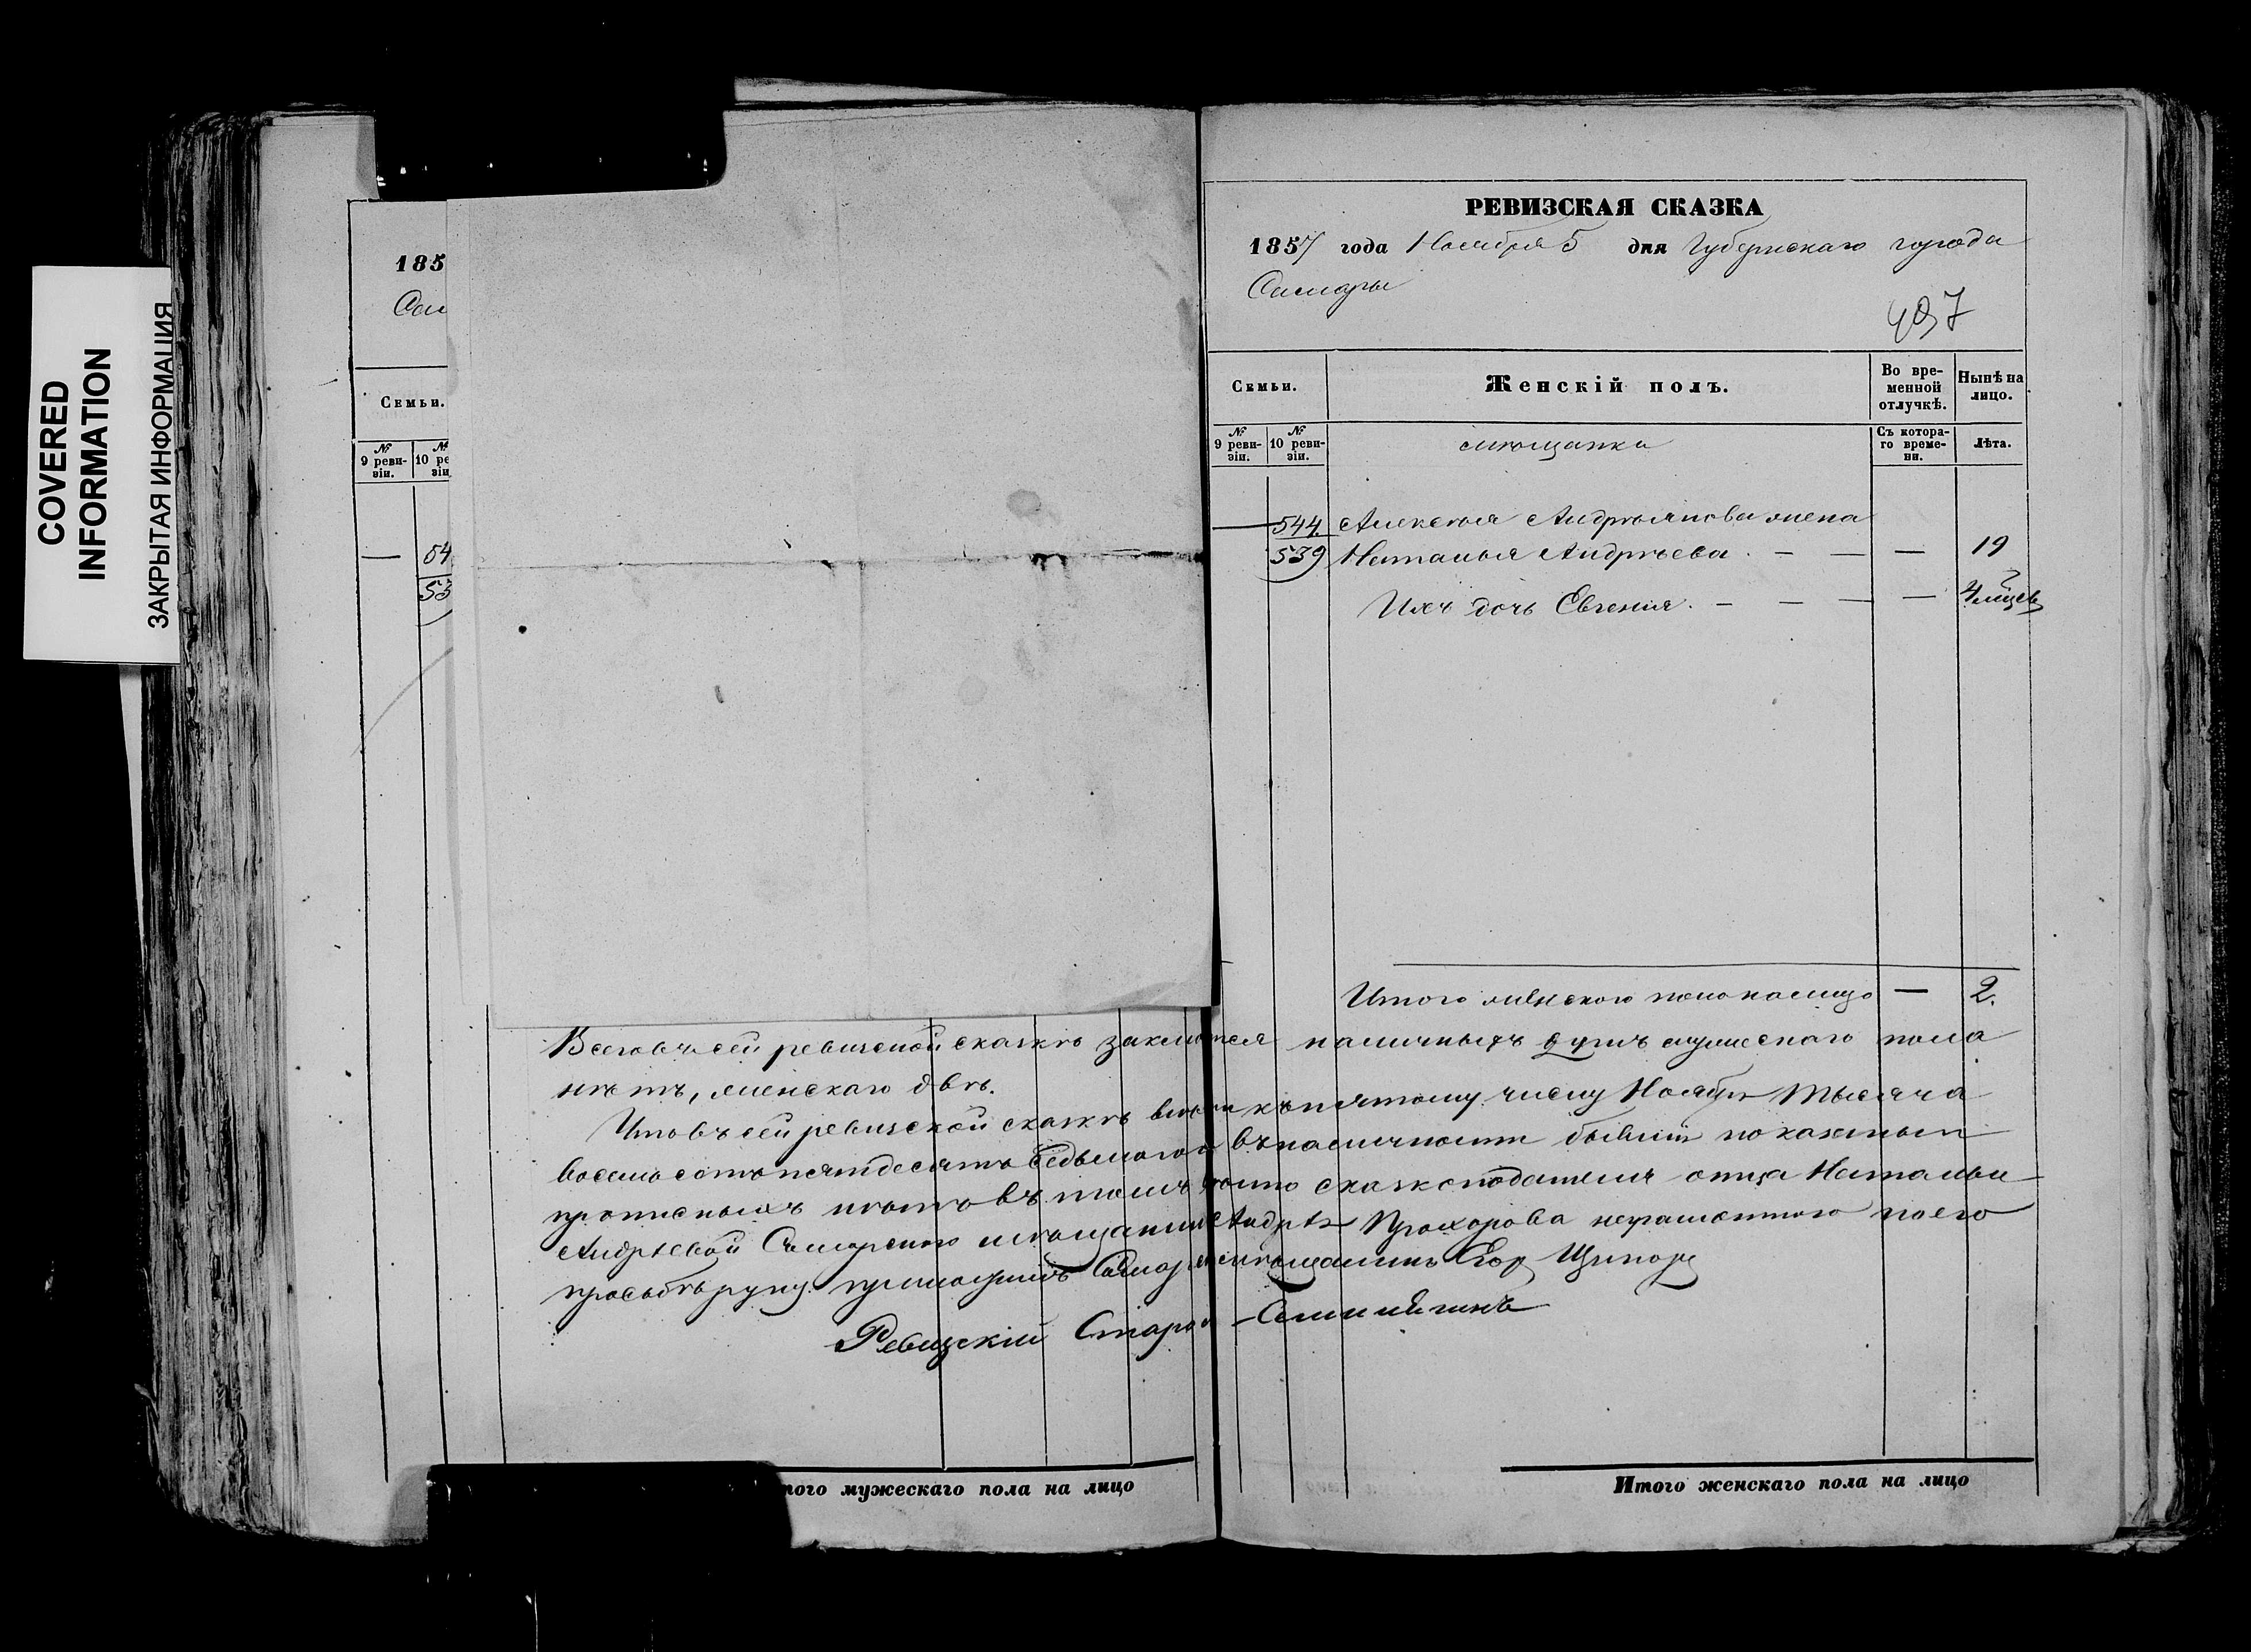 COVERED
INFORMATION
ЗАКРЫТАЯ ИНФОРМАЦИЯ
185
Сам
Семьи.
№ 9 ревизіи.
№ 10 ре
зіи
— 54
53
РЕВИЗСКАЯ СКАЗКА
1857 года Ноября 5 дня Губернскаго города
Самары
497
Семьи.
Женскій полъ.
Во временной отлучкѣ.
Нынѣ на лицо.
№ 9 ревизіи.
№ 10 ревизіи.
мѣщанка
Съ котораго времени.
Лѣта.
— 544 Алексѣя Андрѣянова жена
539 Наталья Андрѣева. — — — 19
Ихъ дочь Евгенія. — — — — 4 мѣсев
Итого женского пола налицо — 2.
Всего въ сей ревизской сказкѣ заключется наличныхъ душъ мужескаго пола
нѣтъ, женскаго двѣ.
Что въ сей ревизской сказкѣ всѣ къ пятому числу Ноября тысяча
восемьсотъ пятдесятъ седьмого въ наличности бывшіи показаны и
прописныхъ нѣтъ въ томъ вмѣсто сказкоподателя отца Натальи
Андрѣевой Самарского мѣщанина Андрѣя Прохорова неграмотного по его
прозьбѣ руку приложилъ Самар мѣщанинъ Егор
Ревизскій Старо
того мужескаго пола на лицо
Итого женскаго пола на лицо